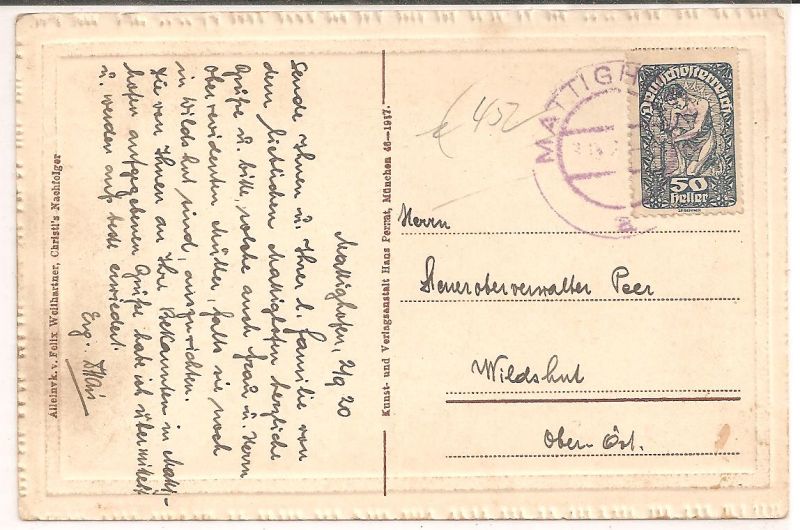 Mattighofen, 2/9 20
Sende Ihnen u. Ihrer l. Familie von
dem lieblichen Mattighofen herzliche
Grüße u. bitte, solche auch Frau u. Herrn
Oberrevidenten Müller, falls sie noch
in Wildshut sind, auszurichten.
Die von Ihnen an Ihre Bekannten in Matt-
hofen aufgegebenen Grüße habe ich übermittelt
u. werden auf's beste erwiedert.
Erg.
Alleinvk. v. Felix Wellhartner, Christl's Nachfolger
Kunst- und Verlagsanstalt Hans Pernat, München 46—1917.
€ 452
MATTIGH
a
Deutschösterreich
50
Heller
Herrn
Steueroberverwalter Peer
Wildshut
Ober-Öst.